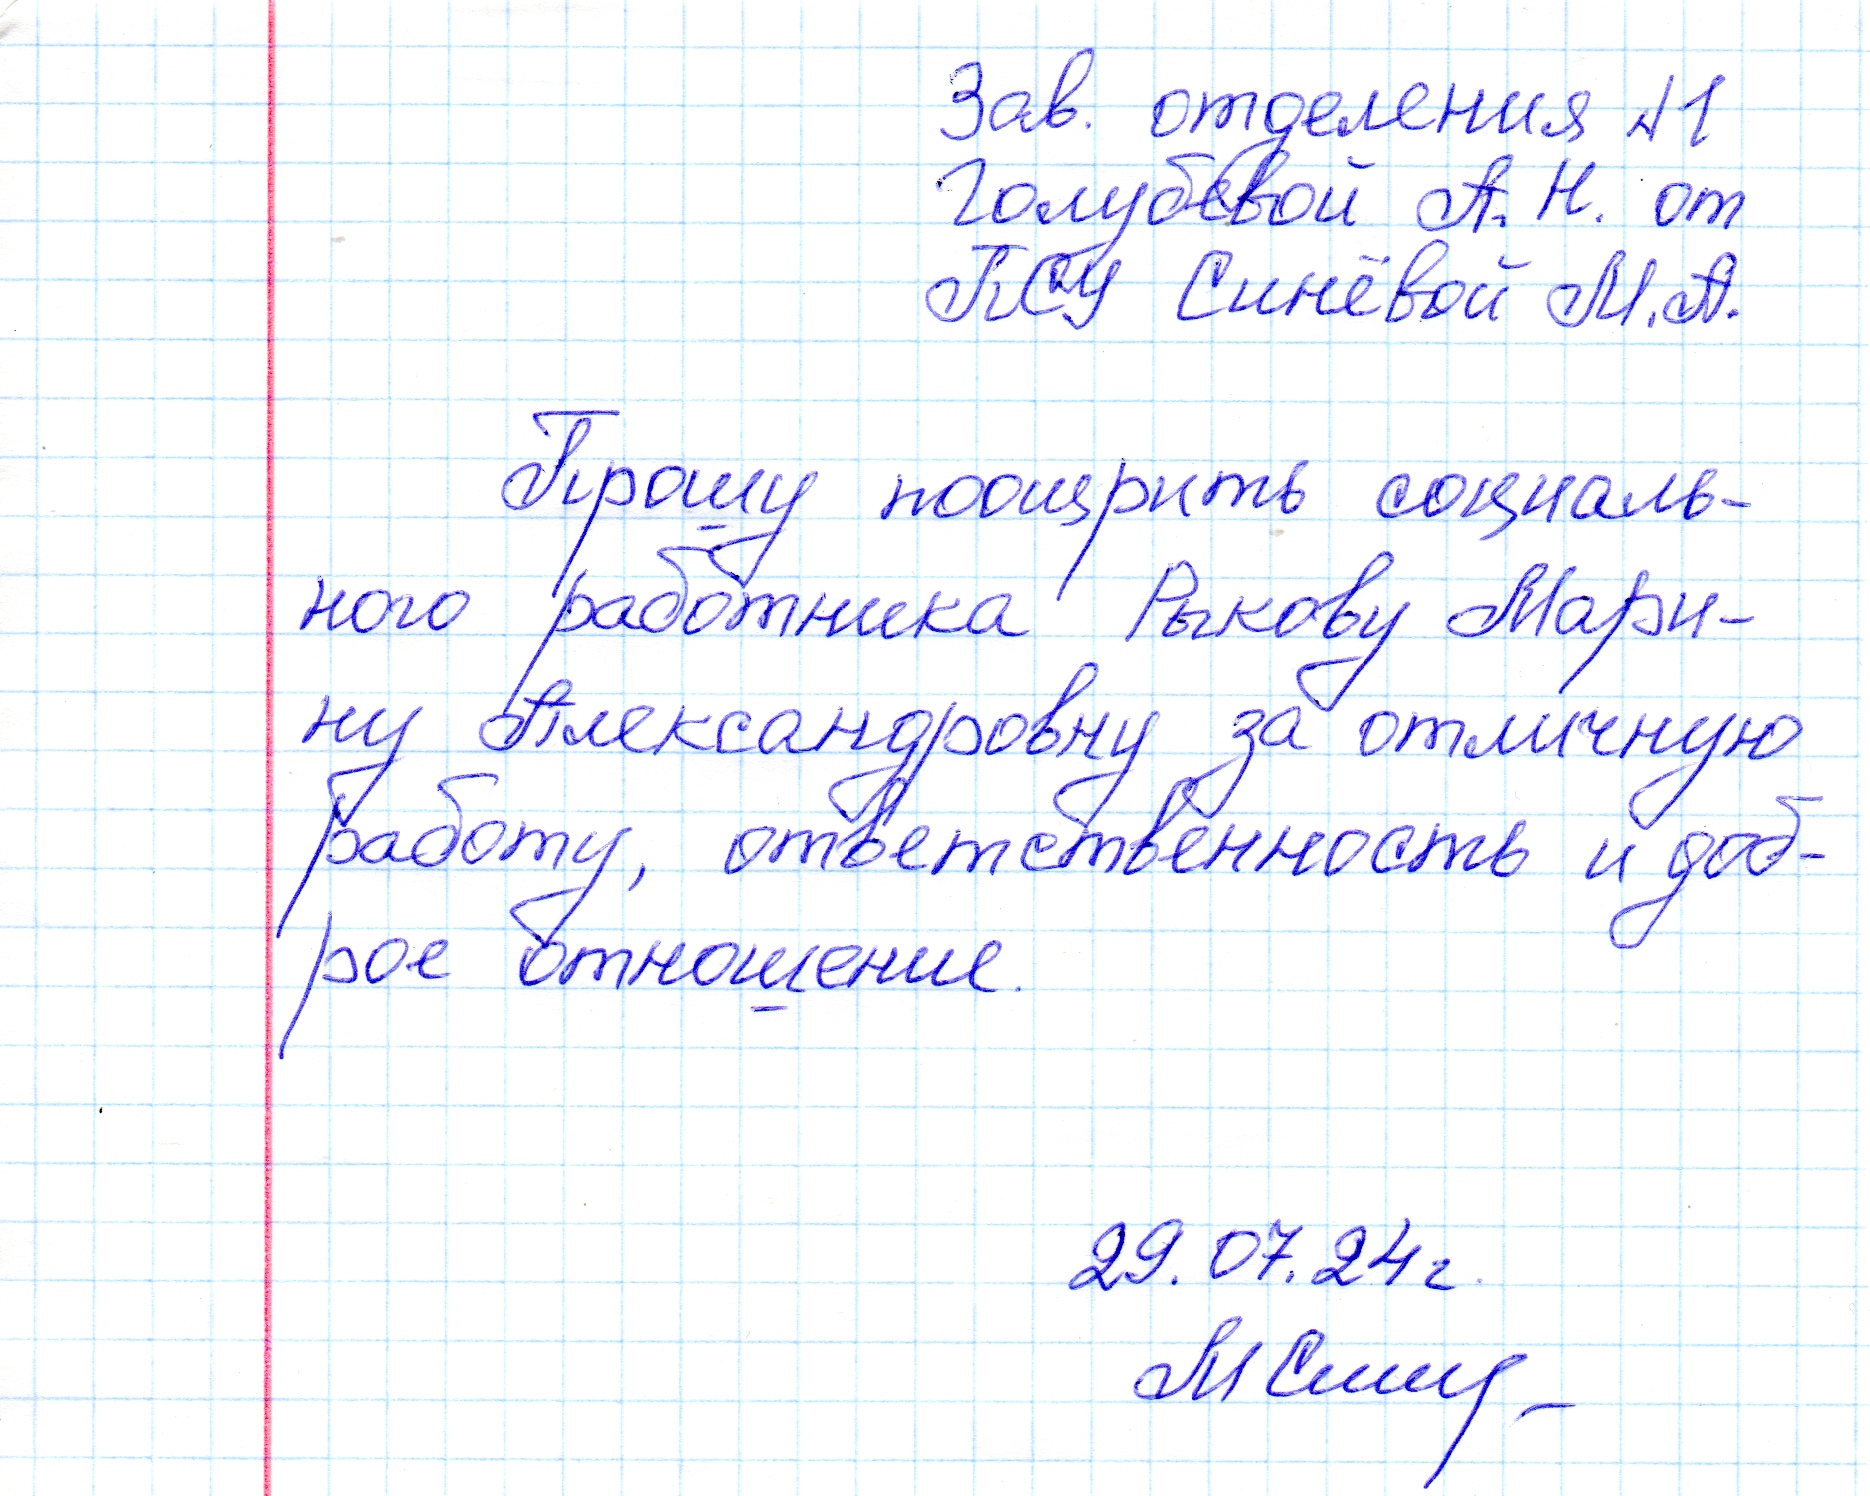 Зав. отделения №1
Голубевой А.Н. от
ПСУ Синёвой М.А.
Прошу поощрить социаль-
ного работника Рыкову Мари-
ну Александровну за отличную
работу, ответственность и доб-
рое отношение.
29.07.24г.